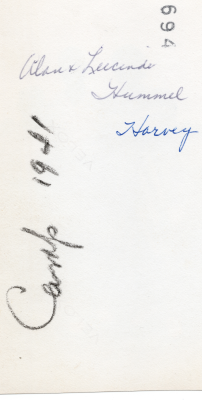 694
Alan & Lucinda
Hummel
Harvey
Camp 1941